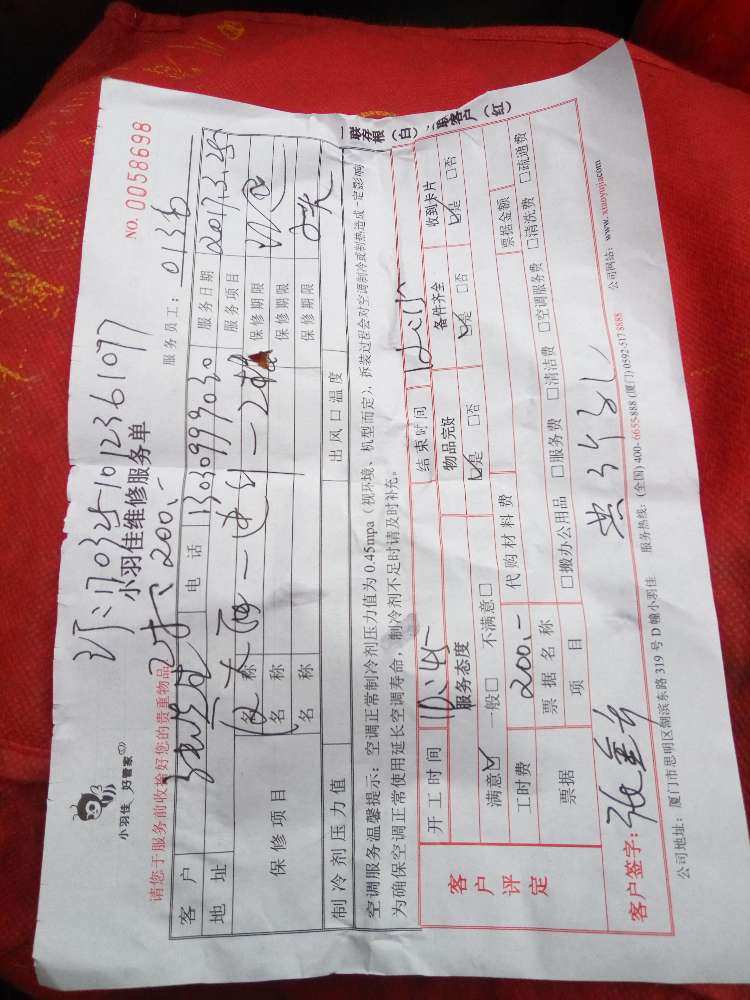 小羽佳 好管家
小羽佳维修服务单
NO. 0058698
请您于服务前收输好您的贵重物品
200.-
服务员工: 0136
客户 电话 13030999030 服务日期 2017.3.28
地址 服务项目
保修项目 名称 保修期限
名称 保修期限
名称 保修期限
制冷剂压力值 出风口温度
空调服务温馨提示: 空调正常制冷剂压力值为 0.45mpa (视环境、机型而定), 拆装过程会对空调制冷或制热造成一定影响
为确保空调正常使用延长空调寿命, 制冷剂不足时请及时补充。
一联存根(白) 二联客户(红)
客户评定
开工时间 10:45 结束时间
服务态度 物品完好 备件齐全 收到卡片
满意☑ 一般□ 不满意□ ☑是 □否 ☑是 □否 ☑是 □否
工时费 200.- 代购材料费 票据金额
票据 票据名称
项目 □搬办公用品 □服务费 □清洁费 □空调服务费 □清洗费 □疏通费
客户签字:
公司地址: 厦门市思明区湖滨东路 319 号 D 幢小羽佳 服务热线: (全国) 400-6655-888 (厦门) 0592-517 8888 公司网站: www.xiaoyujia.com